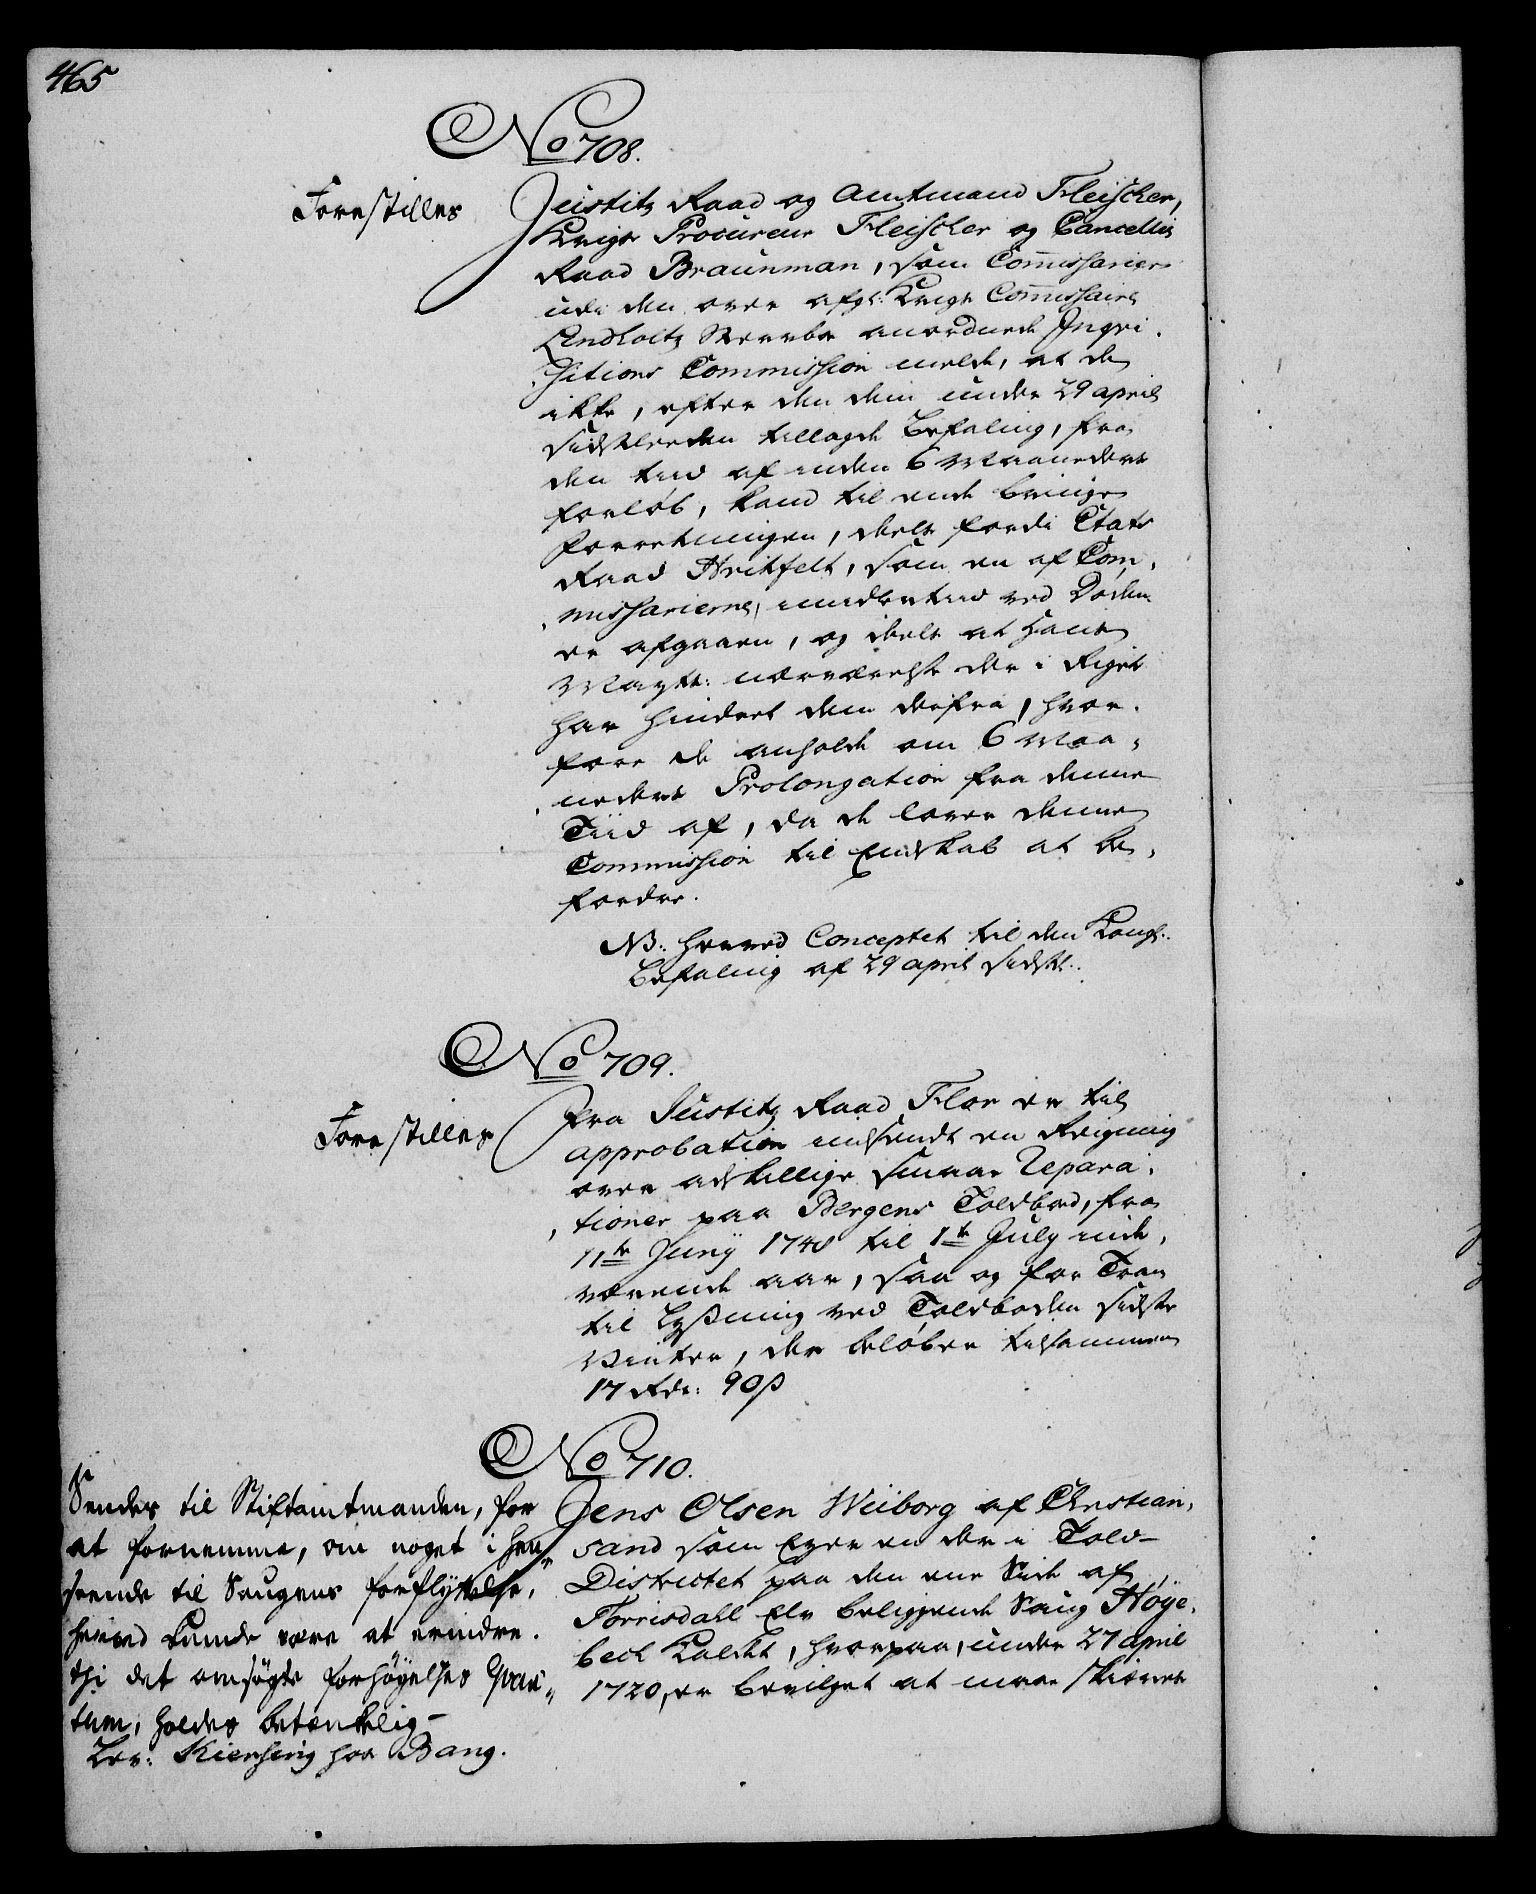 465
No 708.
Forestilles
Justitz Raad og Amtmand Fleischer,
Krigs Procureur Fleischer og Cancellie
Raad Braunman, som Commissarier
udi den over afg: Krigs Commissaire
Lindholtz Sterrboe anordnede Inqvi-
sitions Commission melde, at de
ikke, efter den dem under 29 april
sidstleeden tillagde Befaling, fra
den tiid af inden 6 Maaneders
forløb, kand til ende bringe
Forretningen, deels fordi Etats
Raad Hvitfelt, som en af Com-
missarierne, imidlertiid ved Døden
er afgaaen, og deels at Hans
Mayts: nærværelse her i Riget
har hindret dem derfra, hvor-
fore de anholde om 6 Maa-
neders Prolongation fra denne
Tiid af, da de lover denne
Commission til Endskab at be-
fordre.
NB: herved Conceptet til den Kongl:
Befaling af 29 april sidstl:
No 709.
Forestilles
Fra Justitz Raad Flor er til
approbation indsendt en Reigning
over adskillige smaae Repara-
tioner paa Bergens Toldbod, fra
11te Juny 1748 til 1te July inde-
værende aar, saa og for Tran
til Lysning ved Toldboden sidste
Vinter, der beløber tilsammen
17 Rdr: 90 ß
No 710.
Sendes til Stiftamtmanden, for
at fornemme, om noget i Hen-
seende til Saugens forflyttelse,
herved kunde være at erindre.
thi det ansøgte forhøyelses Qvan-
tum, holdes betænkelig-
Lev: Kiersing hos Bang.
Jens Olsen Weiborg af Christian-
sand som Eyer en der i Told-
Districtet paa den ene Side af
Torrisdahl Elv beliggende Saug Høye-
bech kaldet, hvorpaa, under 27 april
1720, er bevilget at maae skiæres